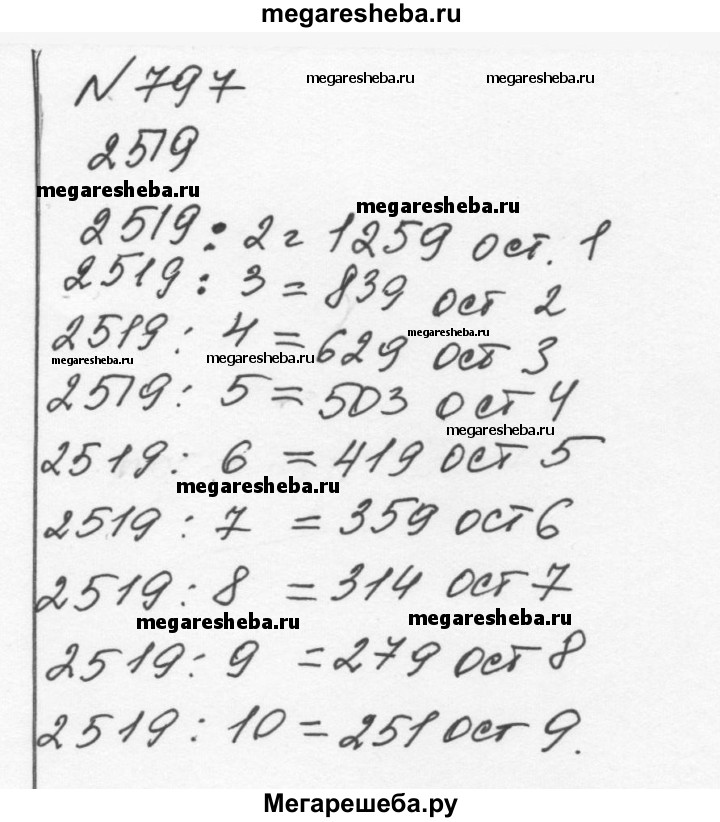 megaresheba.ru
№ 797
megaresheba.ru megaresheba.ru
2519
megaresheba.ru
megaresheba.ru
2519 : 2 = 1259 ост. 1
2519 : 3 = 839 ост 2
megaresheba.ru
2519 : 4 = 629 ост 3
megaresheba.ru megaresheba.ru
2519 : 5 = 503 ост 4
megaresheba.ru
2519 : 6 = 419 ост 5
megaresheba.ru
2519 : 7 = 359 ост 6
2519 : 8 = 314 ост 7
megaresheba.ru megaresheba.ru
2519 : 9 = 279 ост 8
2519 : 10 = 251 ост 9.
Мегарешеба.ру